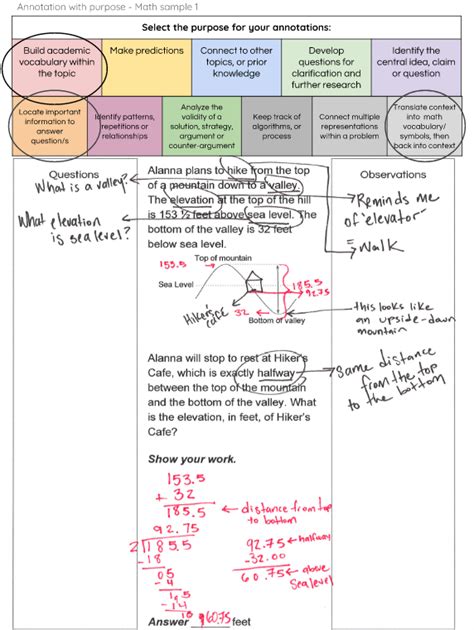 Annotation with purpose - Math sample 1
Select the purpose for your annotations:
Build academic vocabulary within the topic
Make predictions
Connect to other topics, or prior knowledge
Develop questions for clarification and further research
Identify the central idea, claim or question
Locate important information to answer question/s
Identify patterns, repetitions or relationships
Analyze the validity of a solution, strategy, argument or counter-argument
Keep track of algorithms, or process
Connect multiple representations within a problem
Translate context into math vocabulary/ symbols, then back into context
Questions
What is a valley?
What elevation
is sea level?
Alanna plans to hike from the top
of a mountain down to a valley.
The elevation at the top of the hill
is 153 ½ feet above sea level. The
bottom of the valley is 32 feet
below sea level.
Observations
Reminds me
of "elevator"
= Walk
Top of mountain
153.5
Sea Level
185.5
92.75
Hiker's
cafe
32
Bottom of valley
this looks like
an upside-down
mountain
Alanna will stop to rest at Hiker's
Cafe, which is exactly halfway
between the top of the mountain
and the bottom of the valley. What
is the elevation, in feet, of Hiker's
Cafe?
Same distance
from the top
to the bottom
Show your work.
153.5
+ 32
185.5
distance from top
to bottom
92.75
2 185.5
-18
05
-4
15
-14
10
92.75 halfway
-32.00
60.75 above
sea level
Answer 60.75 feet